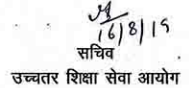 16/8/19
सचिव
उच्चतर शिक्षा सेवा आयोग